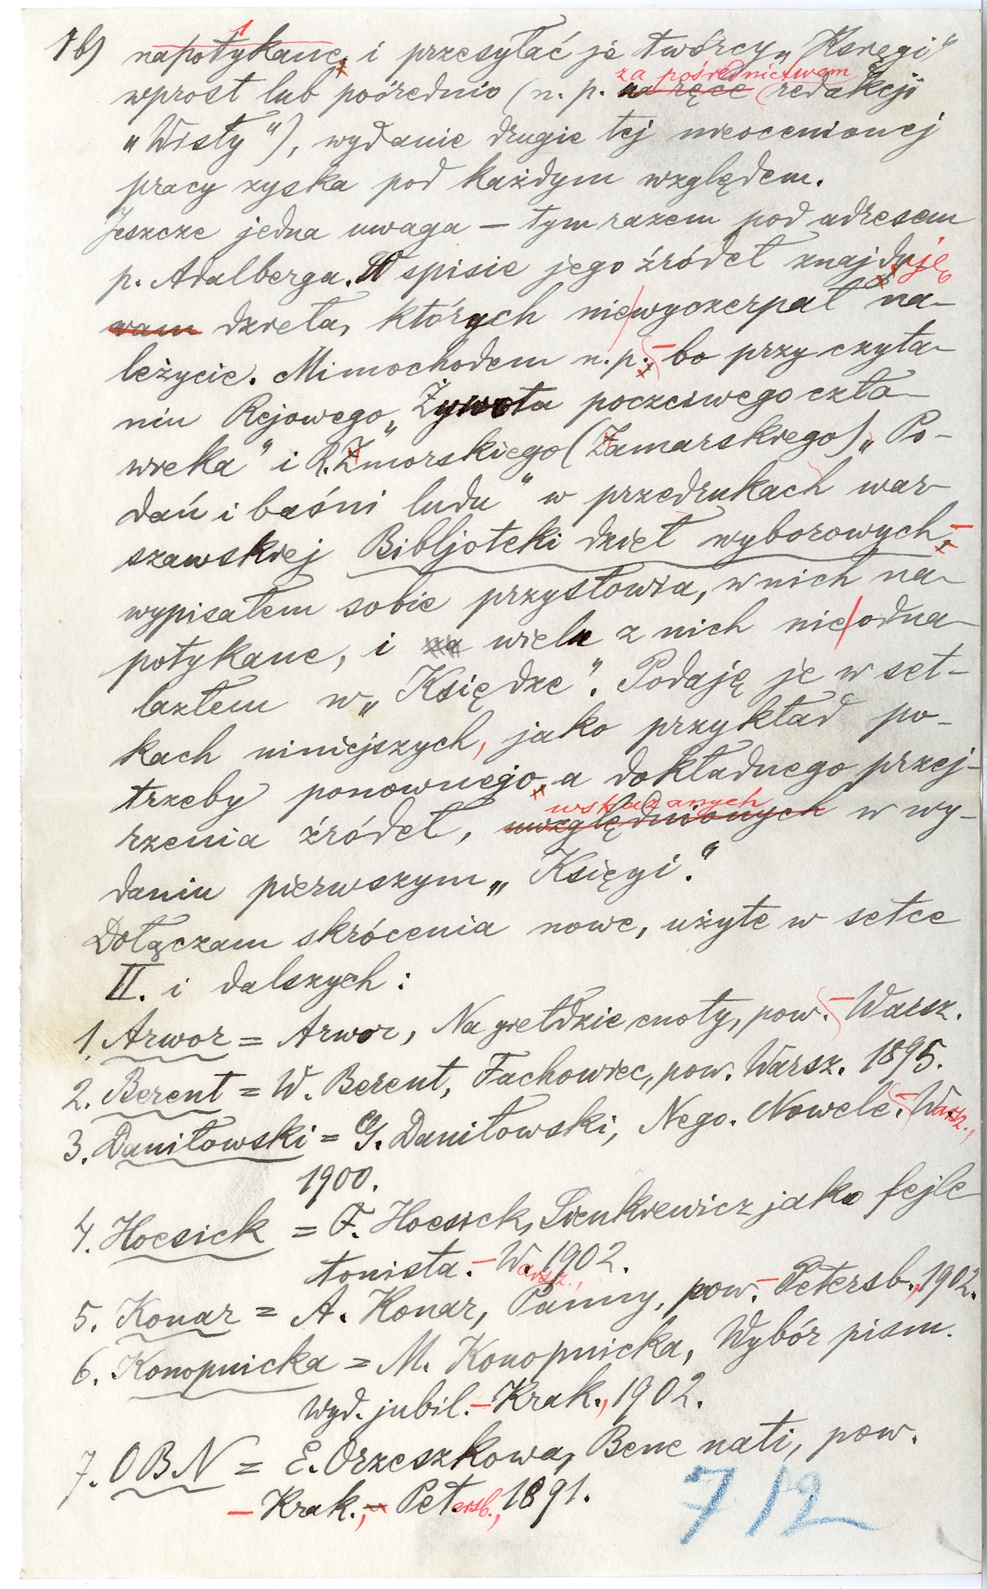 1b) napotykane, i przesyłać je twórcy „Księgi"
za pośrednictwem
wprost lub pośrednio (n. p. na ręce redakcji
„Wisły"), wydanie drugie tej nieocenionej
pracy zyska pod każdym względem.
Jeszcze jedna uwaga — tym razem pod adresem
p. Adalberga. W spisie jego źródeł znajduję
wam dzieła, których nie wyczerpał na-
leżycie. Mimochodem n. p. — bo przy czyta-
niu Rejowego „Żywota poczciwego czło-
wieka" i R. Zmorskiego (Zamarskiego) „Po-
dań i baśni ludu" w przedrukach war-
szawskiej Bibljoteki dzieł wyborowych, —
wypisałem sobie przysłowia, w nich na-
potykane, i na wiele z nich nie odna-
lazłem w „Księdze". Podaję je w set-
kach niniejszych, jako przykład po-
trzeby ponownego, a dokładnego przej-
wskazanych
rzenia źródeł, uwzględnionych w wy-
daniu pierwszym „Księgi."
Dołączam skrócenia nowe, użyte w setce
II. i dalszych:
1. Arwor = Arwor, Na giełdzie cnoty, pow. — Warsz.
2. Berent = W. Berent, Fachowiec, pow. Warsz. 1895.
3. Daniłowski = G. Daniłowski, Nego. Nowele. — Warsz.,
1900.
4. Hoesick = F. Hoesick, Sienkiewicz jako fejle-
tonista. — Warsz., 1902.
5. Konar = A. Konar, Panny, pow. — Petersb., 1902.
6. Konopnicka = M. Konopnicka, Wybór pism.
Wyd. jubil. — Krak., 1902.
7. OBN = E. Orzeszkowa, Bene nati, pow.
— Krak., — Petersb., 1891.
712